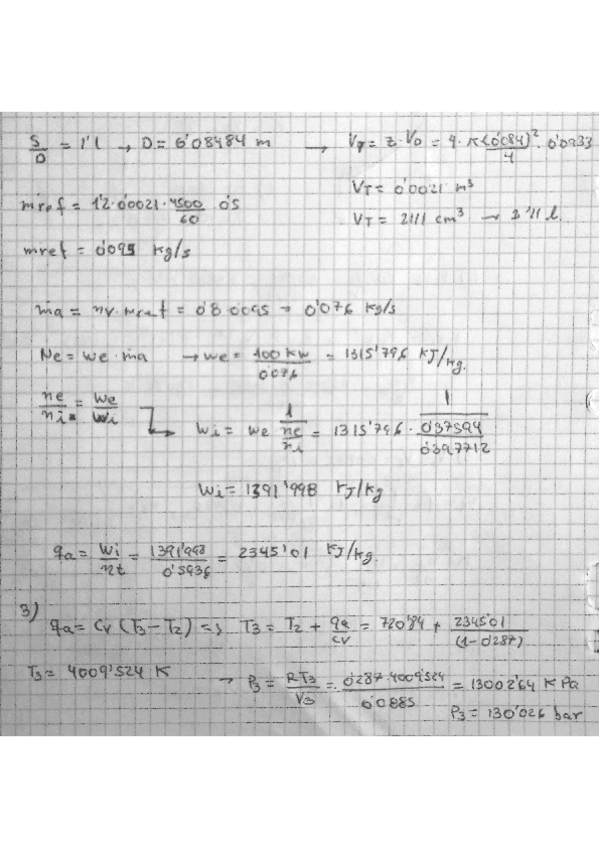 S/D = 1'1 → D = 0'08484 m → V_T = z·V_D = 4·π(0'084)²/4 · 0'0933
V_T = 0'0021 m³
ṁref = 1'2·0'0021·4500/60 · 0'5
V_T = 2111 cm³ → 2'11 l.
ṁref = 0'095 kg/s
ṁa = ηv·ṁref = 0'8·0'095 → 0'076 kg/s
Ne = We·ṁa → We = 100 kW/0'076 = 1315'796 KJ/kg.
ηe/ηi = We/Wi → Wi = We · 1/(ηe/ηi) = 1315'796 · 1/(0'37594/0'397712)
Wi = 1391'998 KJ/kg
qa = Wi/ηt = 1391'998/0'5936 = 2345'01 KJ/kg.
3)
qa = Cv (T3 - T2) => T3 = T2 + qa/cv = 720'84 + 2345'01/(1-0'287)
T3 = 4009'524 K → P3 = RT3/V3 = 0'287·4009'524/0'0885 = 13002'64 KPa
P3 = 130'026 bar